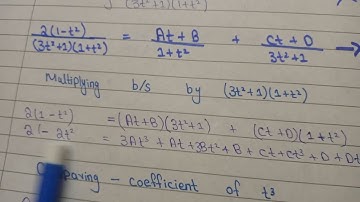 (3t²+1)(1+t²)
2(1-t²) / (3t²+1)(1+t²) = At+B / 1+t² + Ct+D / 3t²+1 →
Multiplying b/s by (3t²+1)(1+t²)
2(1-t²) = (At+B)(3t²+1) + (Ct+D)(1+t²)
2 - 2t² = 3At³ + At + 3Bt² + B + Ct + Ct³ + D + Dt
coefficient of t³